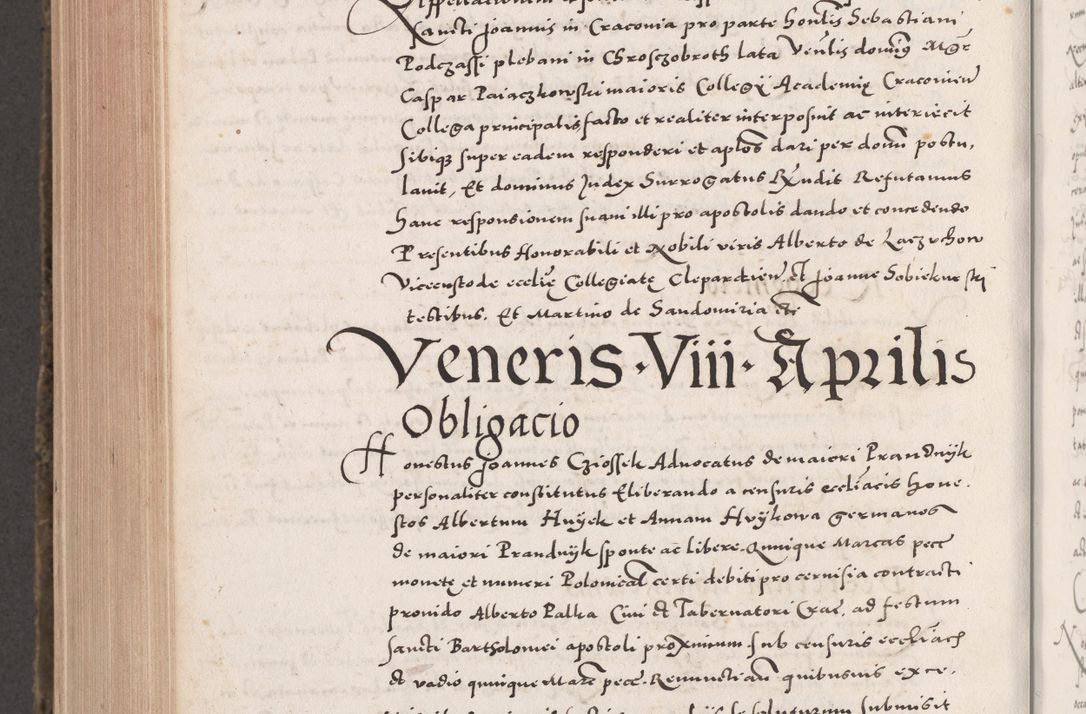 Xancti Joannis in Craconia pro parte honlis Sebastiani
Podczassi plebani in Chrosczobroth lata Venlis dominus Mgr
Caspar Paiaczkowski maioris Collegij Academię Cracovien
Collega principalis facto et realiter interposuit ac interiecit
sibiq3 super eadem responderi et aplos dari per domi postu,
lavit, Et dominus Judex Surrogatus Rndit Refutamus
hanc responsionem suam illi pro apostolis dando et concedendo
Presentibus Honorabili et Nobili viris Alberto de Laczuchow
Vicecustode ecclię Collegiatę Clepardien, et Joanne Sobiekurski
testibus. Et Martino de Sandomiria etc
Veneris · Viii · Aprilis
Obligacio
Honestus Joannes Cziossek Advocatus de maiori Prandnijk
personaliter constitutus Eliberando a censuris eccliacis hone.
stos Albertum Huyek et Annam Hvÿkowa germanos
de maiori Prandnijk sponte ac libere. Quinque Marcas pecc
monetę et numeri Polonical certi debiti pro cervisia contracti
provido Alberto Palka Civi et Tabernatori Crac. ad festum
sancti Bartholomei apostoli proximum sub censuris eccliach
et vadio quinque Marc pecc. Renunctian quibusuis exce.
soluturum submisit